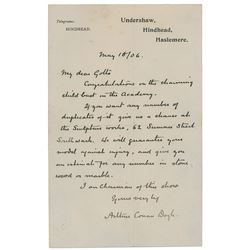 Telegrams:
HINDHEAD.
Undershaw,
Hindhead,
Haslemere.
May 18/06.
My dear Goltz
Congratulations on the charming
child bust in the Academy.
If you want any number of
duplicates of it give us a chance at
the Sculpture works, 62 Sumner Street
Southwark. We will guarantee your
model against injury, and give you
an estimate for any number in stone
wood or marble.
I am Chairman of this show
Yours very truly
Arthur Conan Doyle.